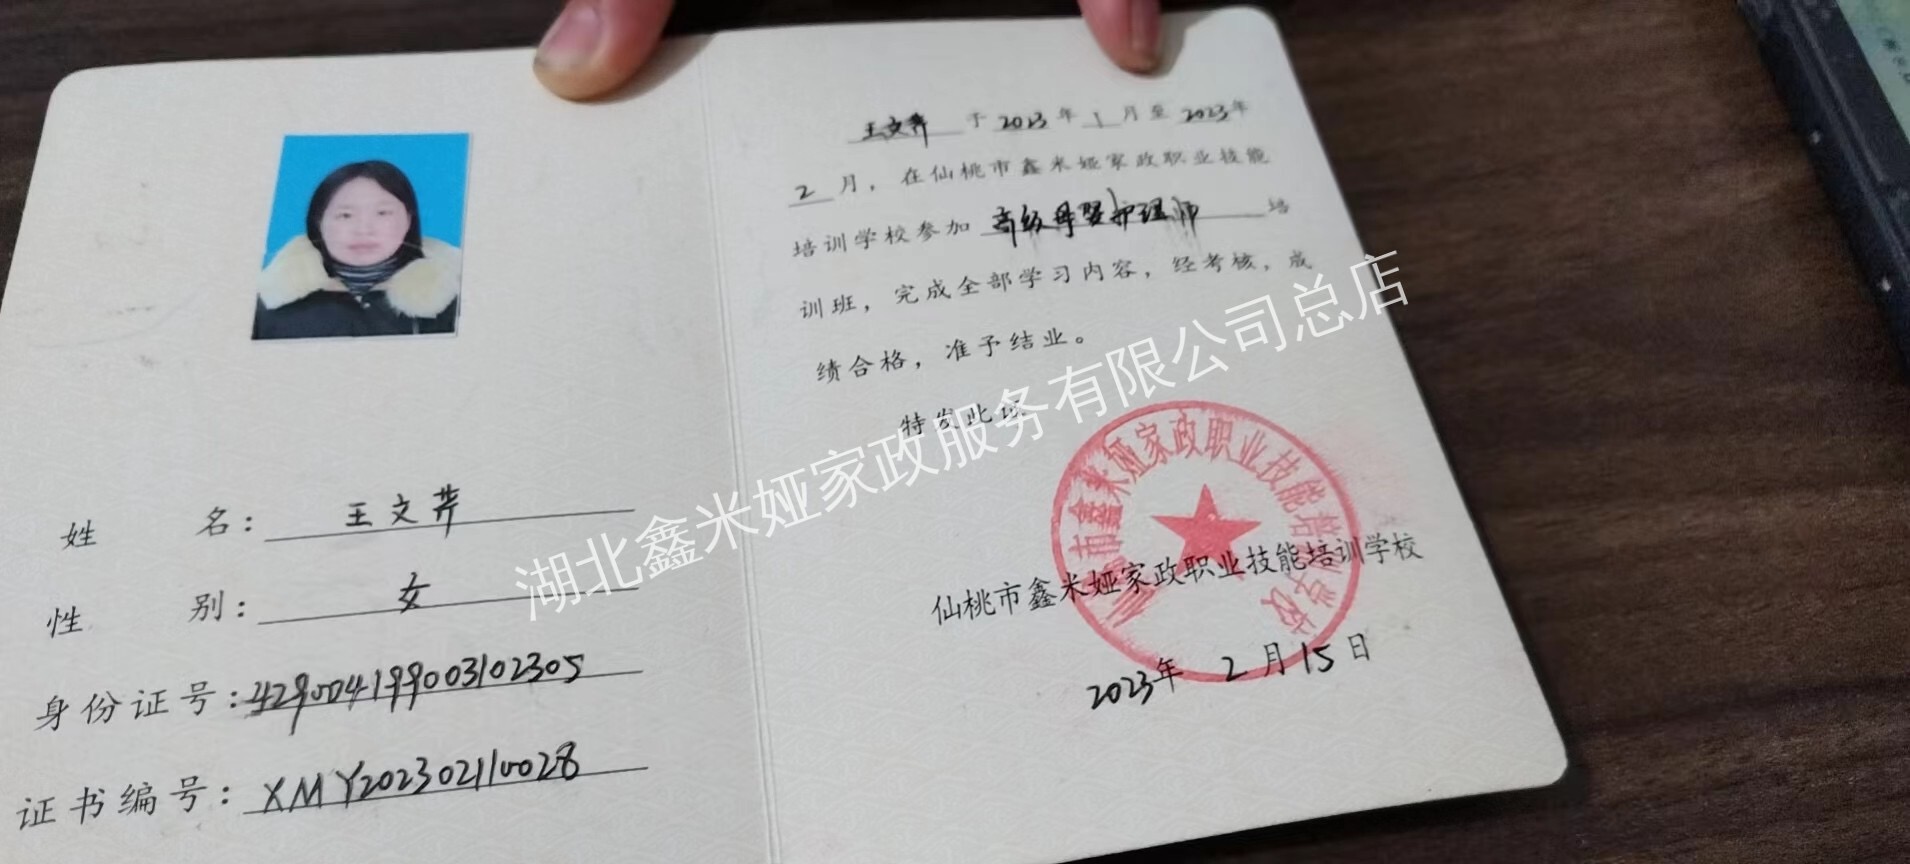 姓 名：王文芹
性 别：女
身份证号：429004199003102305
证书编号：XMY202302110028
王文芹 于 2023 年 1 月至 2023 年
2 月，在仙桃市鑫米娅家政职业技能
培训学校参加 高级母婴护理师 培
训班，完成全部学习内容，经考核，成
绩合格，准予结业。
特发此证
市鑫米娅家政职业技能培训学校
仙桃市鑫米娅家政职业技能培训学校
2023年 2 月 15 日
湖北鑫米娅家政服务有限公司总店